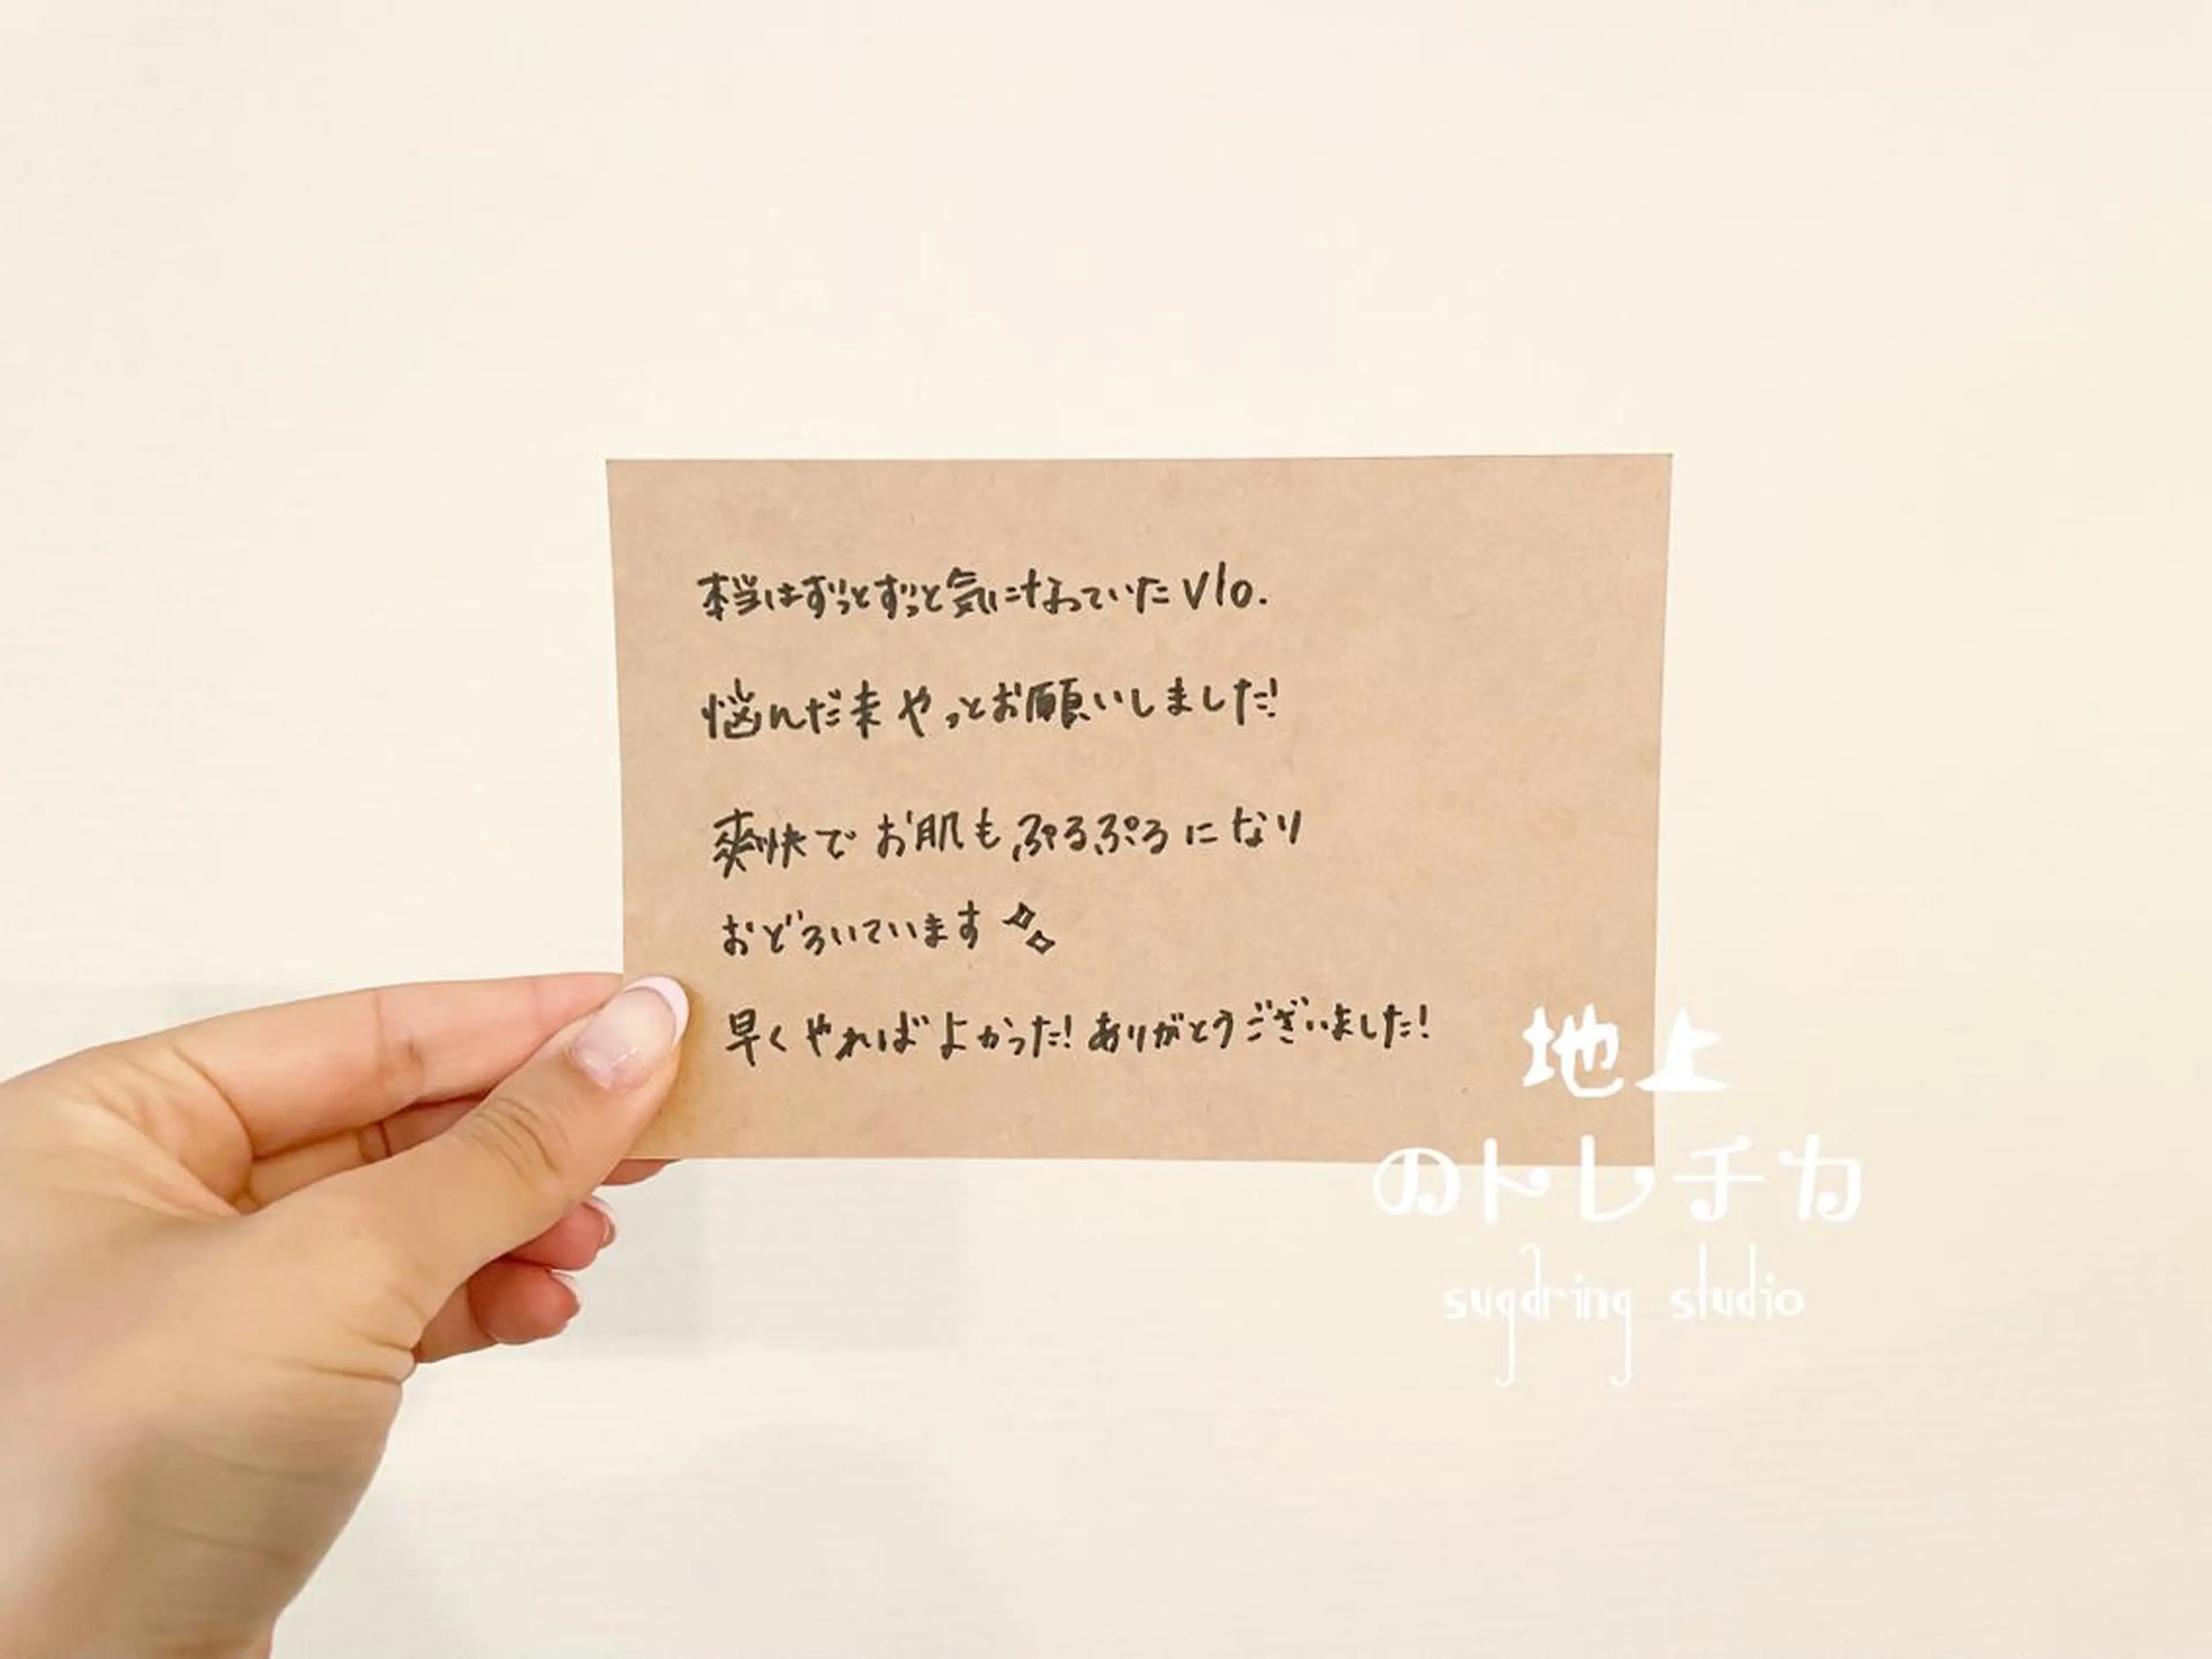 本当はずっとずっと気になっていたVIO.
悩んだ末 やっとお願いしました!
爽快で お肌も ぷるぷる に なり
おどろいています
早く やれば よかった! ありがとうございました!
地上
のトレチカ
sugdring studio